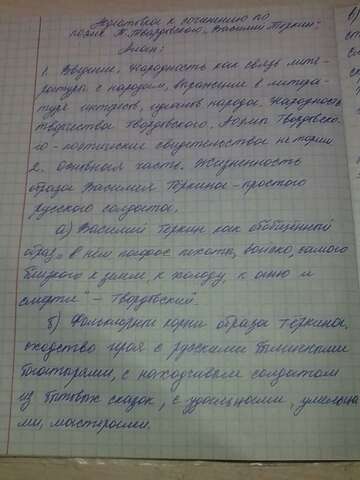 Подготовка к сочинению по
поэме А. Твардовского „Василий Тёркин".
План:
1. Введение. Народность как связь лите-
ратуры с народом, выражение в литера-
туре интересов, идеалов народа. Народность
творчества Твардовского. Лирика Твардовско-
го - поэтические свидетельства истории
2. Основная часть. Жизненность
образа Василия Тёркина - простого
русского солдата.
а) Василий Теркин как обобщённый
образ „в нём пафос пехоты, войска, самого
близкого к земле, к холоду, к огню и
смерти" - Твардовский.
б) Фольклорные корни образа Тёркина,
сходство героя с русскими былинными
богатырями, с находчивым солдатом
из бытовых сказок, с удальцами, умельца
ми, мастерами.